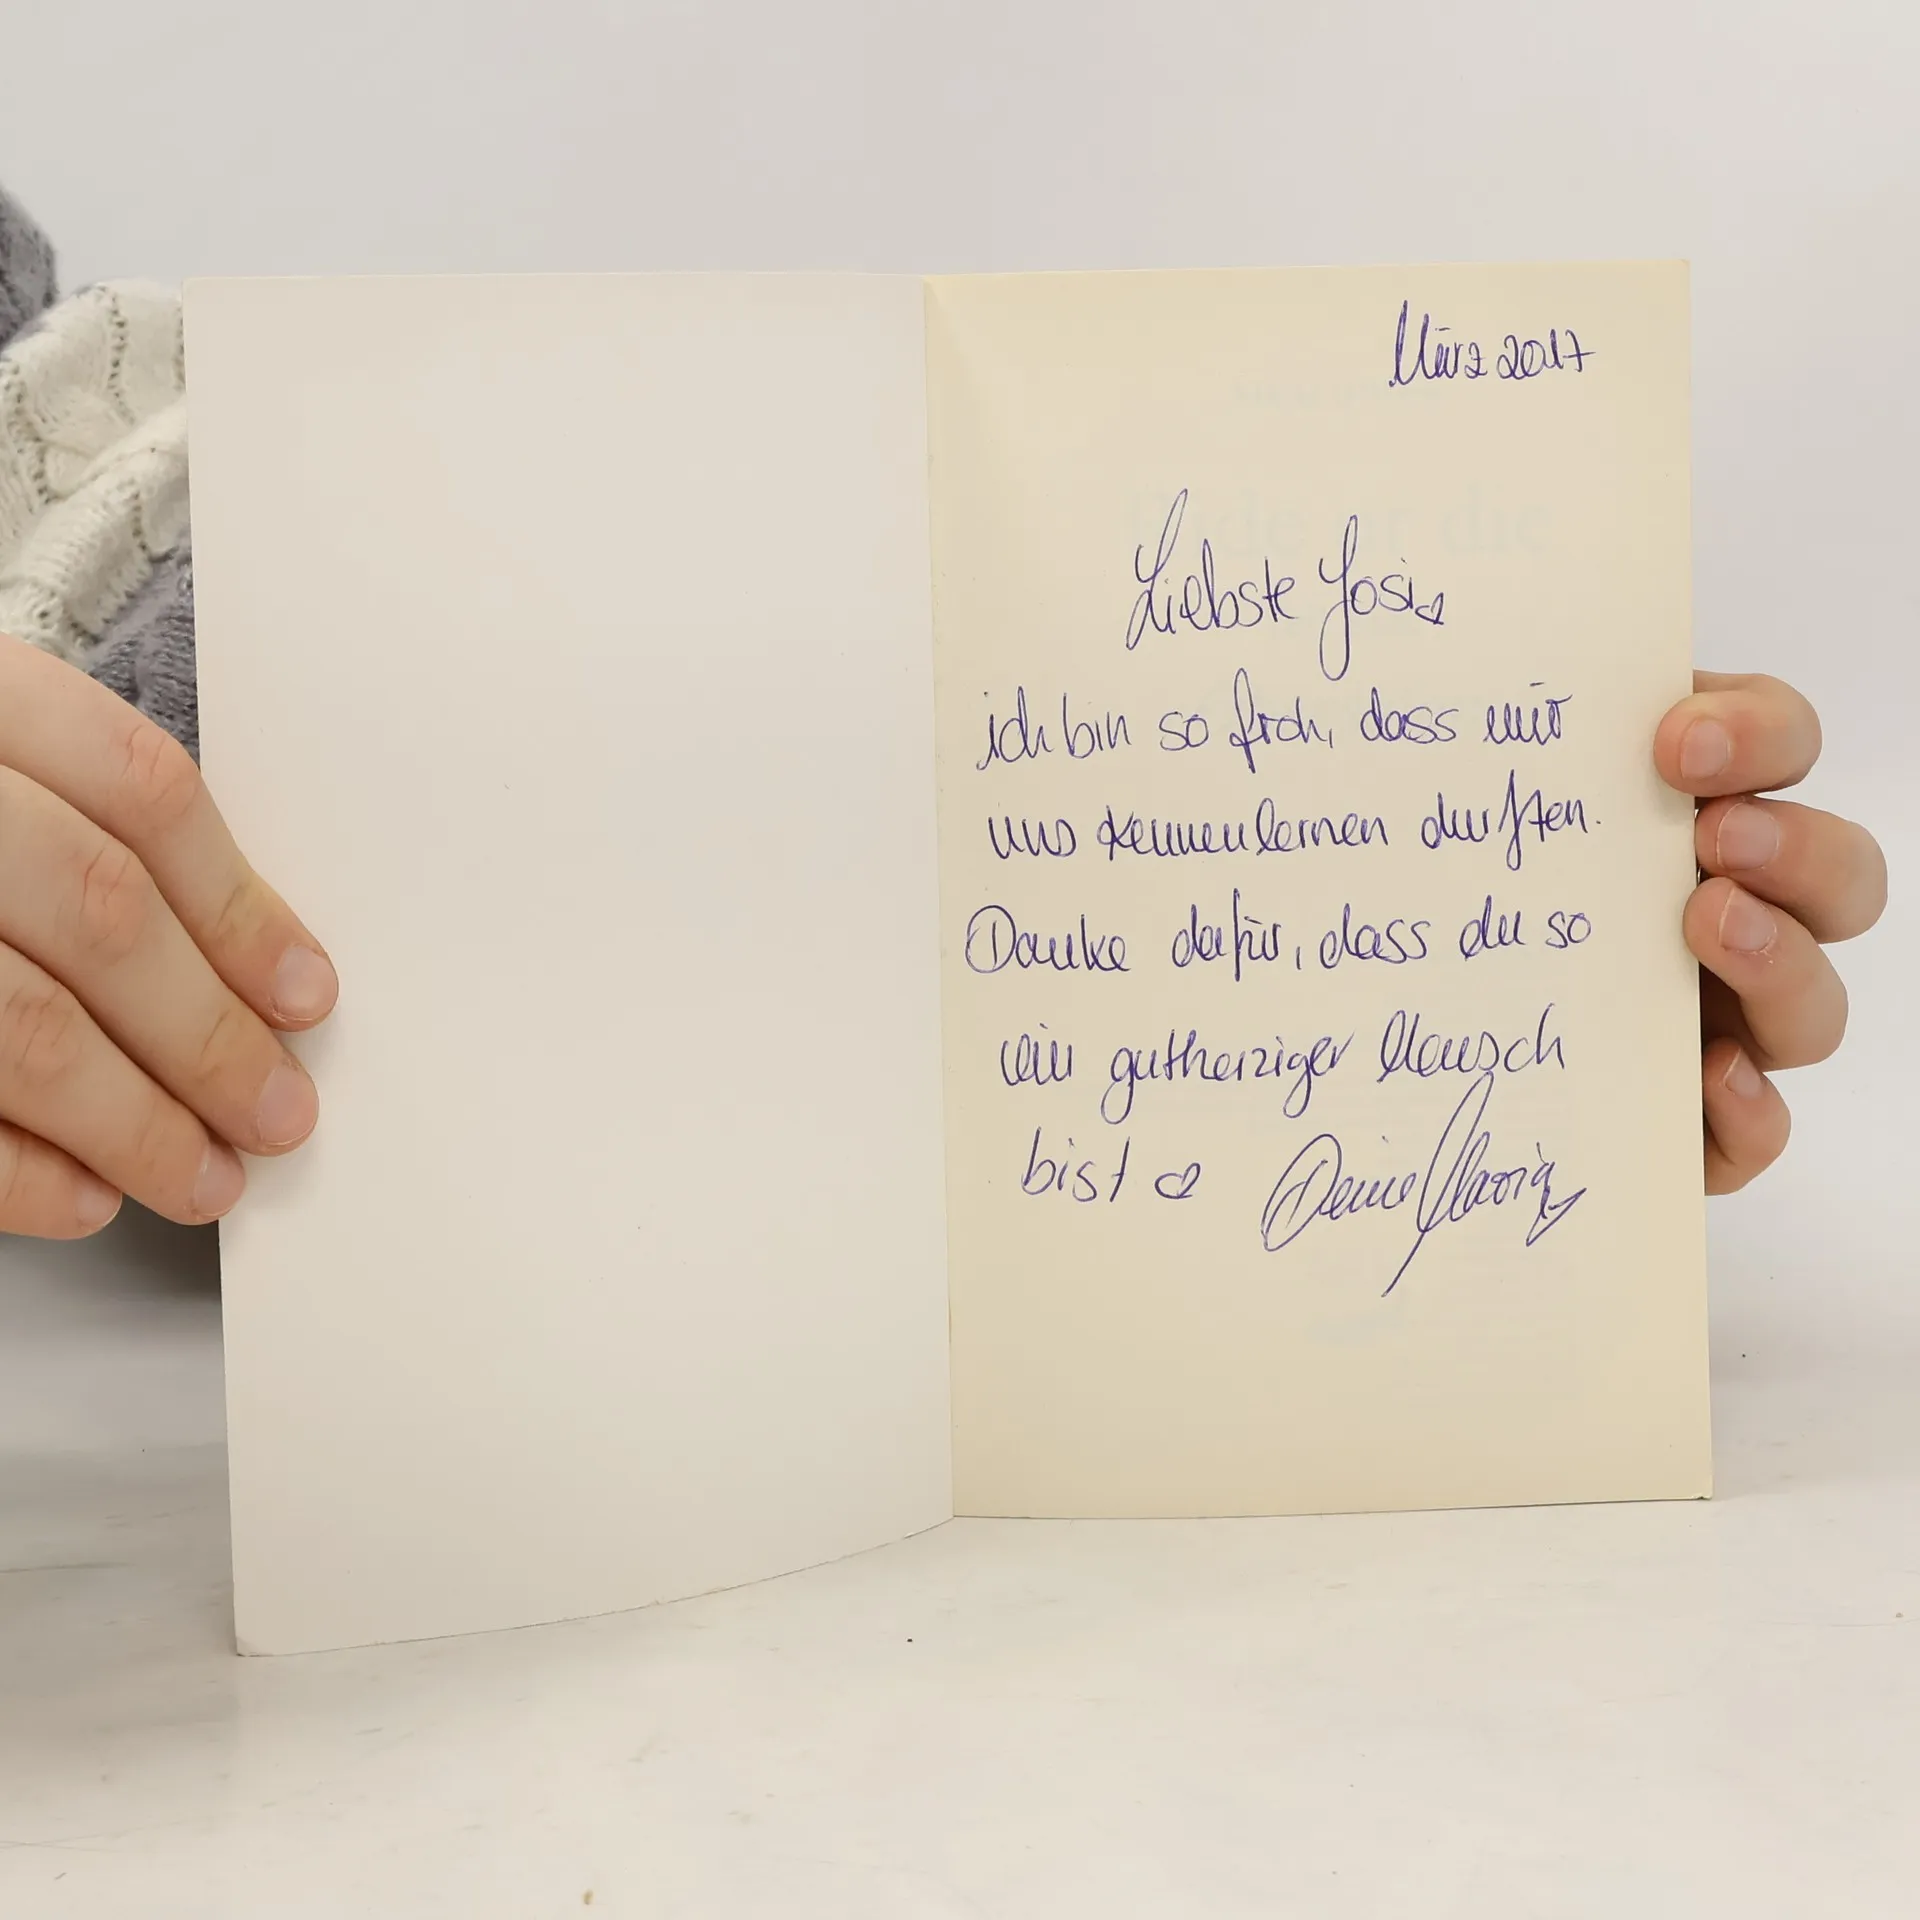 März 2017
Liebste Josi♡
ich bin so froh, dass wir
uns kennenlernen durften.
Danke dafür, dass du so
ein gutherziger Mensch
bist ♡ Deine Maria